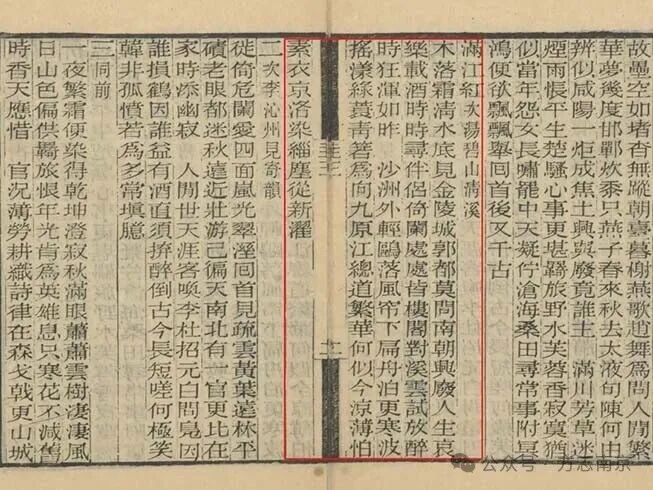 故壘空如堵杳無蹤朝臺暮榭燕歌趙舞爲問人閒繁
華夢幾度邯鄲炊黍只燕子春來秋去太液句陳何由
辨似咸陽一炬成焦土興與廢竟誰主　滿川芳草迷
煙雨悵平生楚騷心事更甚羇旅野水芙蓉香寂寞猶
似當年怨女長嘯罷中天凝佇滄海桑田尋常事附冥
鴻便欲飄飄舉回首後又千古
滿江紅次湯碧山清溪
木落霜清水底見金陵城郭都莫問南朝興廢人生哀
樂載酒時時尋伴侶倚闌處處皆樓閣對溪雲試放醉
時狂渾如昨　沙洲外輕鷗落風帘下扁舟泊更寒波
搖漾綠蓑青箬爲向九原江總道繁華何似今涼薄怕
素衣京洛染緇塵從新濯
二次李沁州見寄韻
徙倚危闌愛四面嵐光翠溼回首見疏雲黃葉遠林平
磧老眼都迷秋遠近壯游已徧天南北有一官更比在
家時添幽寂　人閒世天涯客喚李杜招元白問鳧因
誰損鶴因誰益有酒直須拚醉倒古今長短嗟何極笑
韓非孤憤若爲多常塡臆
三同前
一夜繁霜便染得乾坤澄寂秋滿眼蕭蕭雲樹淒淒風
日山色偏供羈旅恨年光肯爲英雄息只寒花不減舊
時香天應惜　官況薄勞耕織詩律在森戈戟更山城
公众号·方志南京